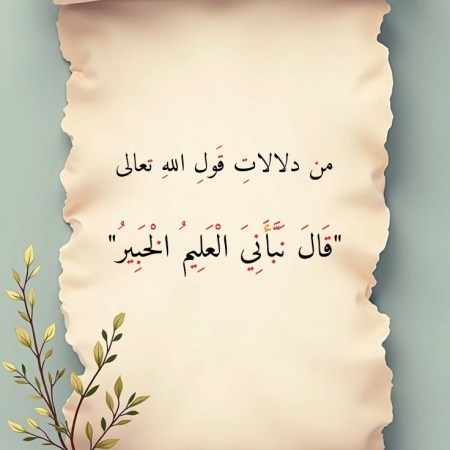 من دلالاتِ قَولِ اللهِ تعالى
"قَالَ نَبَّأَنِيَ الْعَلِيمُ الْخَبِيرُ"